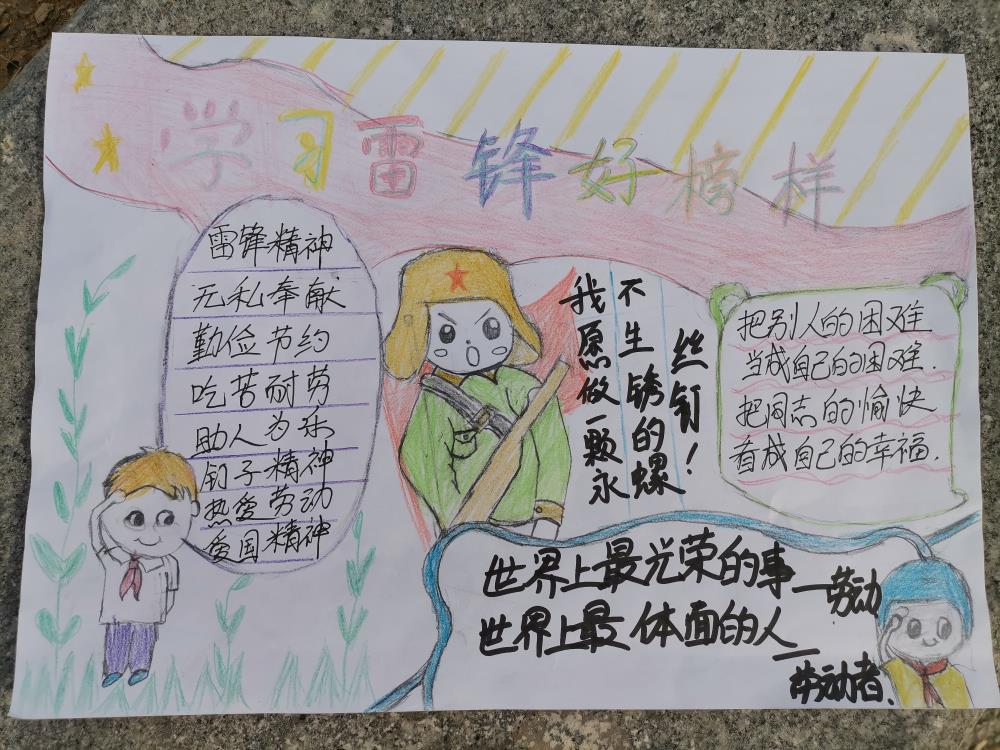 学习雷锋好榜样
雷锋精神
无私奉献
勤俭节约
吃苦耐劳
助人为乐
钉子精神
热爱劳动
爱国精神
我愿做一颗永
不生锈的螺
丝钉！
把别人的困难
当成自己的困难.
把同志的愉快
看成自己的幸福.
世界上最光荣的事
—劳动
世界上最体面的人
—劳动者.